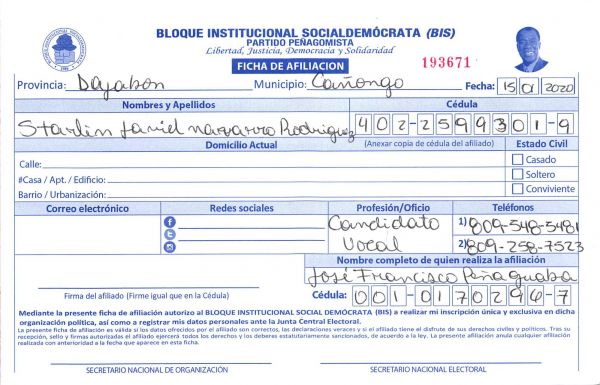 BLOQUE INSTITUCIONAL SOCIALDEMÓCRATA (BIS)
PARTIDO PEÑAGOMISTA
Libertad, Justicia, Democracia y Solidaridad
FICHA DE AFILIACION
193671
Provincia: Dajabon Municipio: Cañongo Fecha: 15 01 2020
Nombres y Apellidos Cédula
Starlin Javiel navarro Rodriguez 402-2599301-9
Domicilio Actual (Anexar copia de cédula del afiliado) Estado Civil
Calle: Casado
#Casa / Apt. / Edificio: Soltero
Barrio / Urbanización: Conviviente
Correo electrónico Redes sociales Profesión/Oficio Teléfonos
Candidato 1) 809-548-5481
Vocal 2) 809-258-7523
Nombre completo de quien realiza la afiliación
José Francisco Peña guaba
Firma del afiliado (Firme igual que en la Cédula) Cédula: 001-0170296-7
Mediante la presente ficha de afiliación autorizo al BLOQUE INSTITUCIONAL SOCIAL DEMÓCRATA (BIS) a realizar mi inscripción única y exclusiva en dicha
organización política, así como a registrar mis datos personales ante la Junta Central Electoral.
La presente ficha de afiliación es válida si los datos ofrecidos por el afiliado son correctos, las declaraciones verces y si el afiliado tiene el disfrute de sus derechos civiles y políticos. Tras su
recepción, sello y firmas autorizadas el afiliado ejercerá todos los derechos y los deberes estatutariamente sancionados, de acuerdo a la ley. La presente afiliación anula cualquier afiliación
realizada con anterioridad a la fecha que aparece en esta ficha.
SECRETARIO NACIONAL DE ORGANIZACIÓN SECRETARIO NACIONAL ELECTORAL